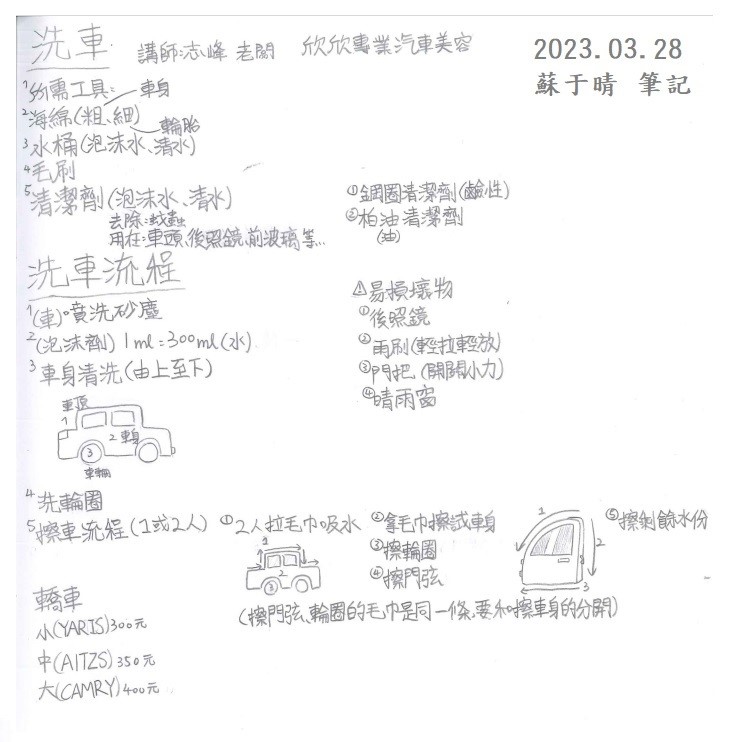 洗車 講師:志峰 老闆 欣欣專業汽車美容
2023.03.28
蘇于晴 筆記
1 所需工具: 車身
2 海綿(粗、細) 輪胎
3 水桶(泡沫水、清水)
4 毛刷
5 清潔劑(泡沫水、清水)
去除:蚊蟲
用在:車頭、後照鏡、前玻璃等...
①鋼圈清潔劑(鹼性)
②柏油清潔劑
(油)
洗車流程
1 (車)噴洗砂塵
2 (泡沫劑) 1ml=300ml(水)
3 車身清洗(由上至下)
⚠易損壞物
①後照鏡
②雨刷(輕拉輕放)
③門把 (開關小力)
④晴雨窗
車頂
1
2 車身
3
車輪
4 洗輪圈
5 擦車流程(1或2人) ①2人拉毛巾吸水
1
2
3
②拿毛巾擦試車身
③擦輪圈
④擦門弦
1
2
3
⑤擦剩餘水份
(擦門弦、輪圈的毛巾是同一條,要和擦車身的分開)
轎車
小(YARIS)300元
中(AITZS)350元
大(CAMRY)400元